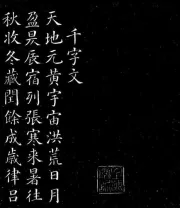 千字文
天地元黃宇宙洪荒日月
盈昃辰宿列張寒來暑往
秋收冬藏閏餘成歲律呂